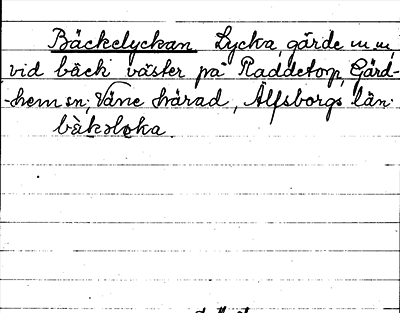 Bäckelyckan Lycka, gärde m m,
vid bäck väster på Raddetorp, Gärd-
-hem sn. Väne härad, Älfsborgs län.
bäkəlȯka.